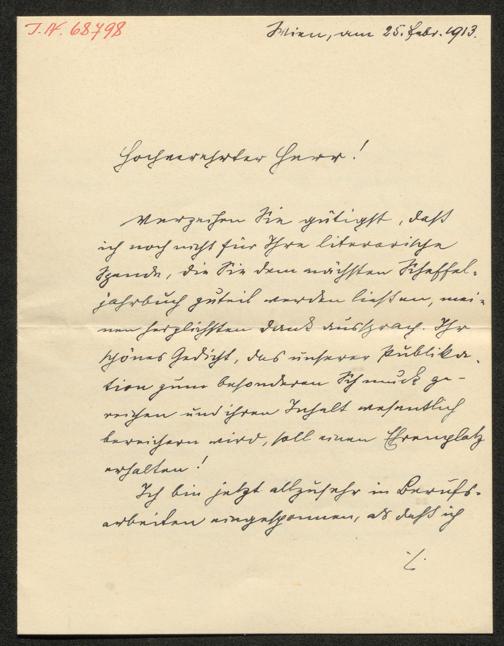 I.N. 68798
Wien, am 25. Febr. 1913.
Hochverehrter Herr!
Verzeihen Sie gütigst, daß
ich noch nicht für Ihre literarische
Spende, die Sie dem nächsten Scheffel-
jahrbuch zuteil werden ließen, mei-
nen herzlichsten Dank aussprach. Ihr
schönes Gedicht, das unserer Publika-
tion zum besonderen Schmuck ge-
reichen und ihren Inhalt wesentlich
bereichern wird, soll einen Ehrenplatz
erhalten!
Ich bin jetzt allzusehr in Berufs-
arbeiten eingesponnen, als daß ich